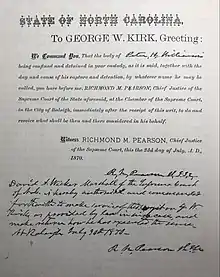 STATE OF NORTH CAROLINA.
To GEORGE W. KIRK, Greeting:
We Command You, That the body of
being confined and detained in your custody, as it is said, together with the
day and cause of his capture and detention, by whatever name he may be
called, you have before me, RICHMOND M. PEARSON, Chief Justice of the
Supreme Court of the State aforesaid, at the Chamber of the Supreme Court,
in the City of Raleigh, immediately after the receipt of this writ, to do and
receive what shall be then and there considered in his behalf.
Witness RICHMOND M. PEARSON, Chief Justice
of the Supreme Court, this the 22d day of July, A. D.,
1870.
R. M. Pearson
David A. Wicker Marshal of the Supreme Court
is hereby authorized and commanded
forthwith to make service of the
Kirk as provided by law in such case and
make return how he
At Raleigh July
R. M. Pearson